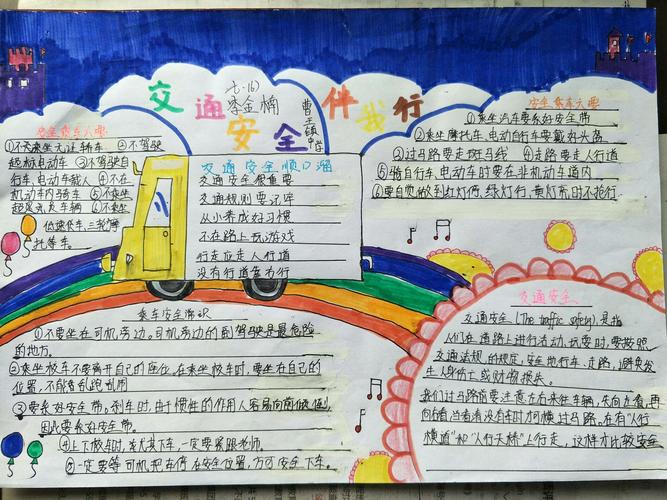 交通安全伴我行
七.(6)
李金楠
曹王镇中学
安全乘车六不要
①不乘坐无证轿车 ②不驾驶
超标电动车 ③不驾驶自
行车、电动车载人 ④不在
机动车内骑车 ⑤不乘坐
超员超载车辆 ⑥不乘坐
低速货车、三轮摩
托等车。
安全乘车六要
①乘坐汽车要系好安全带
②乘坐摩托车、电动自行车要戴好头盔
③过马路要走斑马线 ④走路要走人行道
⑤骑自行车、电动车时要在非机动车道内
⑥要自觉做到红灯停,绿灯行,黄灯亮时不抢行
交通安全顺口溜
交通安全很重要
交通规则要记牢
从小养成好习惯
不在路上玩游戏
行走应走人行道
没有行道靠右行
乘车安全常识
①不要坐在司机旁边。司机旁边的副驾驶是最危险
的地方。
②乘坐校车不要离开自己的座位。在乘坐校车时,要坐在自己的
位置,不能乱跑乱闹
③要系好安全带。刹车时,由于惯性的作用人容易向前倾倒,
因此要系好安全带。
④上下校车时,先大袋下车,一定要跟跟老师。
⑤一定要等司机把车停在安全位置,方可安全下车。
交通安全
交通安全(The traffic safety)是指
人们在道路上进行活动、玩耍时,要按照
交通法规的规定,安全地行车、走路,避免发
生人身伤亡或财物损失。
我们过马路前要注意左右来往车辆,先向左看,再
向右看,当看清没有车时才可横过马路。在有"人行
横道"和"人行天桥"上行走,这样才比较安全